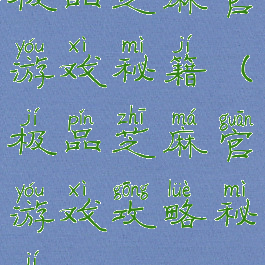 极品芝麻官
yóu xì mì jí
游戏秘籍（
jí pǐn zhī má guān
极品芝麻官
yóu xì gōng lüè mì
游戏攻略秘
jí